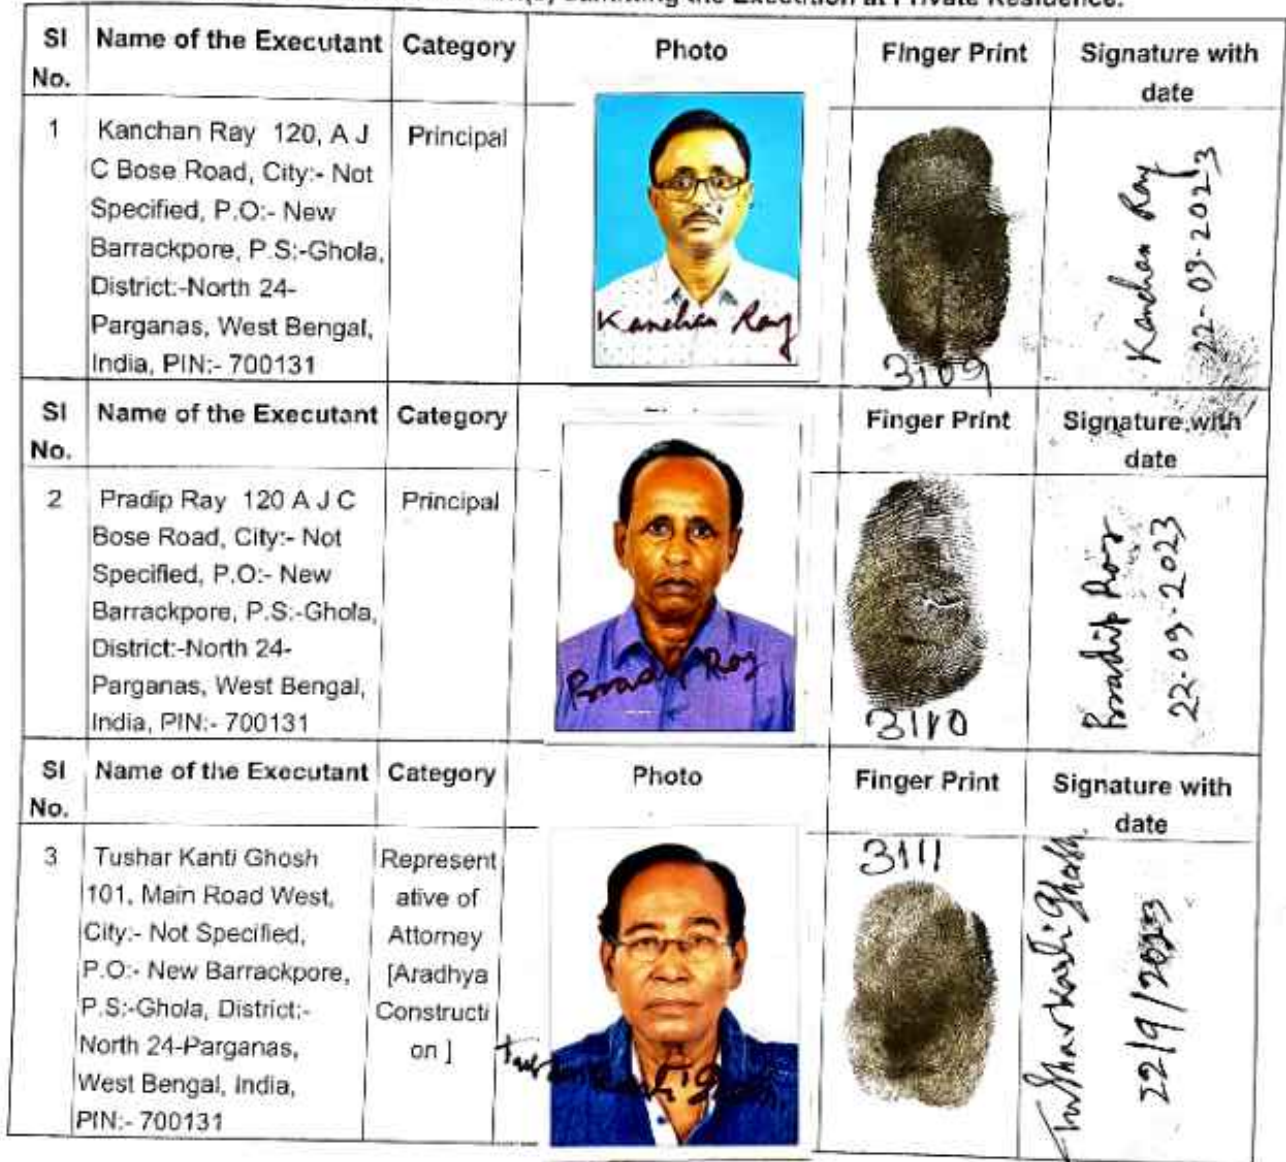 admitting the Execution at Private Residence.
Sl No. Name of the Executant Category Photo Finger Print Signature with date
1 Kanchan Ray 120, A J Principal
C Bose Road, City:- Not
Specified, P.O:- New
Barrackpore, P.S:-Ghola,
District:-North 24-
Parganas, West Bengal,
India, PIN:- 700131
Kanchan Ray
3109
Kanchan Ray
22-09-2023
Sl No. Name of the Executant Category Finger Print Signature with date
2 Pradip Ray 120 A J C Principal
Bose Road, City:- Not
Specified, P.O:- New
Barrackpore, P.S:-Ghola,
District:-North 24-
Parganas, West Bengal,
India, PIN:- 700131
Pradip Roy
3110
Pradip Roy
22-09-2023
Sl No. Name of the Executant Category Photo Finger Print Signature with date
3 Tushar Kanti Ghosh Represent
101, Main Road West, ative of
City:- Not Specified, Attorney
P.O:- New Barrackpore, [Aradhya
P.S:-Ghola, District:- Constructi
North 24-Parganas, on ]
West Bengal, India,
PIN:- 700131
3111
Tushar Kanti Ghosh
22/9/2023